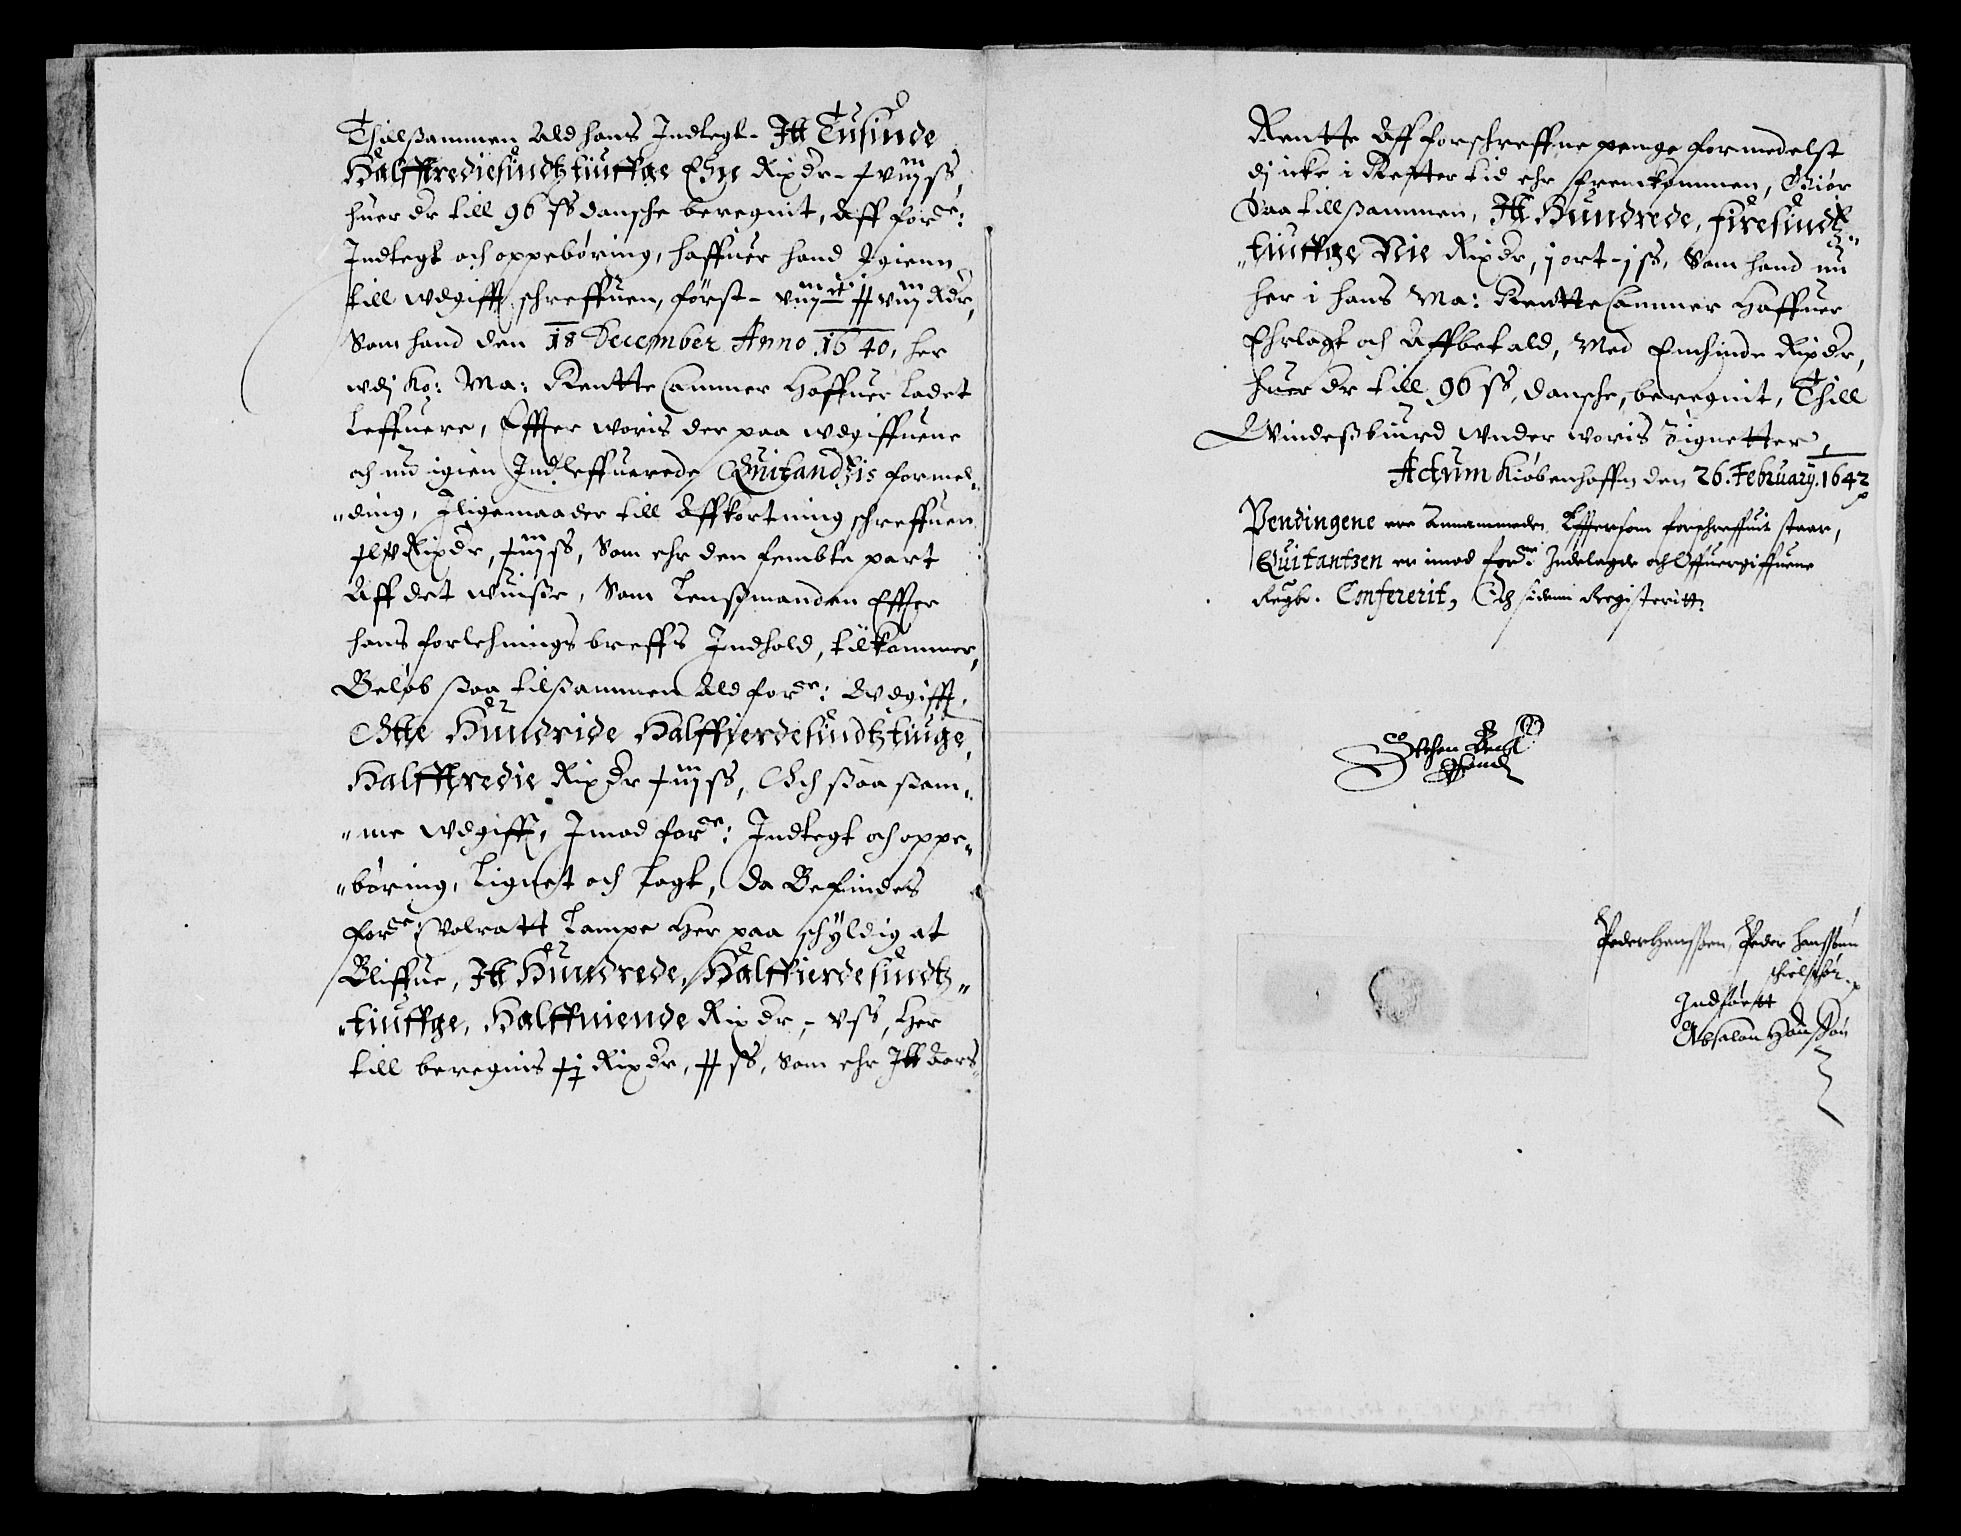 Thillßammen Ald hans Indtegt - Itt Tusinde
Halfftrediesindtztiuffge Rixdr - xviij ss,
huer dr till 96 ss dansche beregnit, Aff forde:
Indtegt och oppebøring, haffuer hand Igienn
till wdgifft schreffuen, først - viij c xx viij Rdr,
Som hand den 18 December Anno 1640, her
wdj Ko: Ma: Rentte Cammer Haffuer Ladet
Leffuere, Effter woris der paa wdgiffuene
och nu igien Indleffuerede Quitandtzis formel-
ding, Iligemaader till Affkortning schreffuen
xlv Rixdr, xiij ss, Som ehr den fembte part
Aff det wuiße, Som Lenßmanden Effter
hans forlehnings breffs Indhold, tilkommer,
Beløb ßaa tilßammen Ald forde: Wdgifft,
Otte Hundride Halffierdesindtztiuge,
Halfftredie Rixdr xiij ss, Och ßaa ßam-
me wdgifft, Imod forde: Indtegt och oppe-
børing, Lignet och lagt, da Befindes
forde: Volratt Lampe Her paa schyldig at
Bliffue, Itt Hundrede, Halffierdesindtz-
tiuffge, Halffniende Rixdr, - v ss, Her
till beregnis xj Rixdr, xx ss, Som ehr Itt Aars
Rentte Aff forschreffne penge formedelst
dj icke i Rettertid ehr fremkommen, Giør
Saa tillßammen, Itt Hundrede, firesindtz-
tiuffge Nie Rixdr, j ort - j ss, Som hand nu
her i hans Ma: Rentte Cammer Haffuer
Ehrlagt och Affbetald, Med Enchinde Rixdr,
huer dr till 96 ss, dansche, beregnit, Thill
Windeßbiurd Wnder woris Zignetter,
Actum Kiøbenhaffn den 26. February. 1642
Pendingene ere Annammede Effersom forschreffuit staar,
Quitantzen er imod forde: Indelagde och Offuergiffuene
Regb. Confererit, Och sidenn Registeritt.
Stehen Beck
Hand
Peder Hanssen, Peder Hanssønn
Indførtt
Absalon Hanssøn